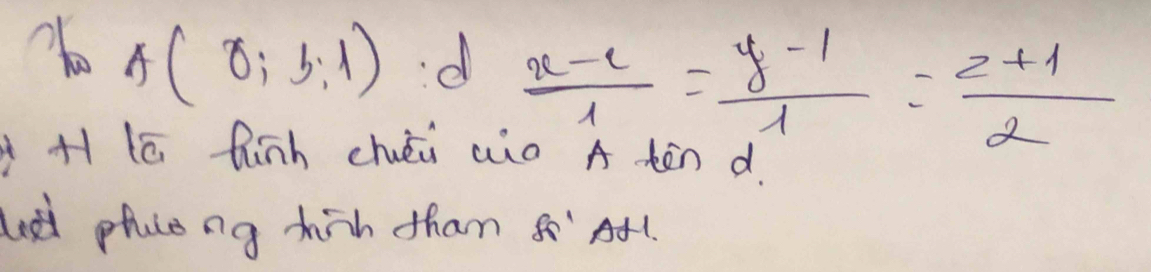 Cho A( 0; 3; 1) : d x-2/1 = y-1/1 = z+1/2
H là hình chiếu của A lên d.
Viết phương trình tham số AH.